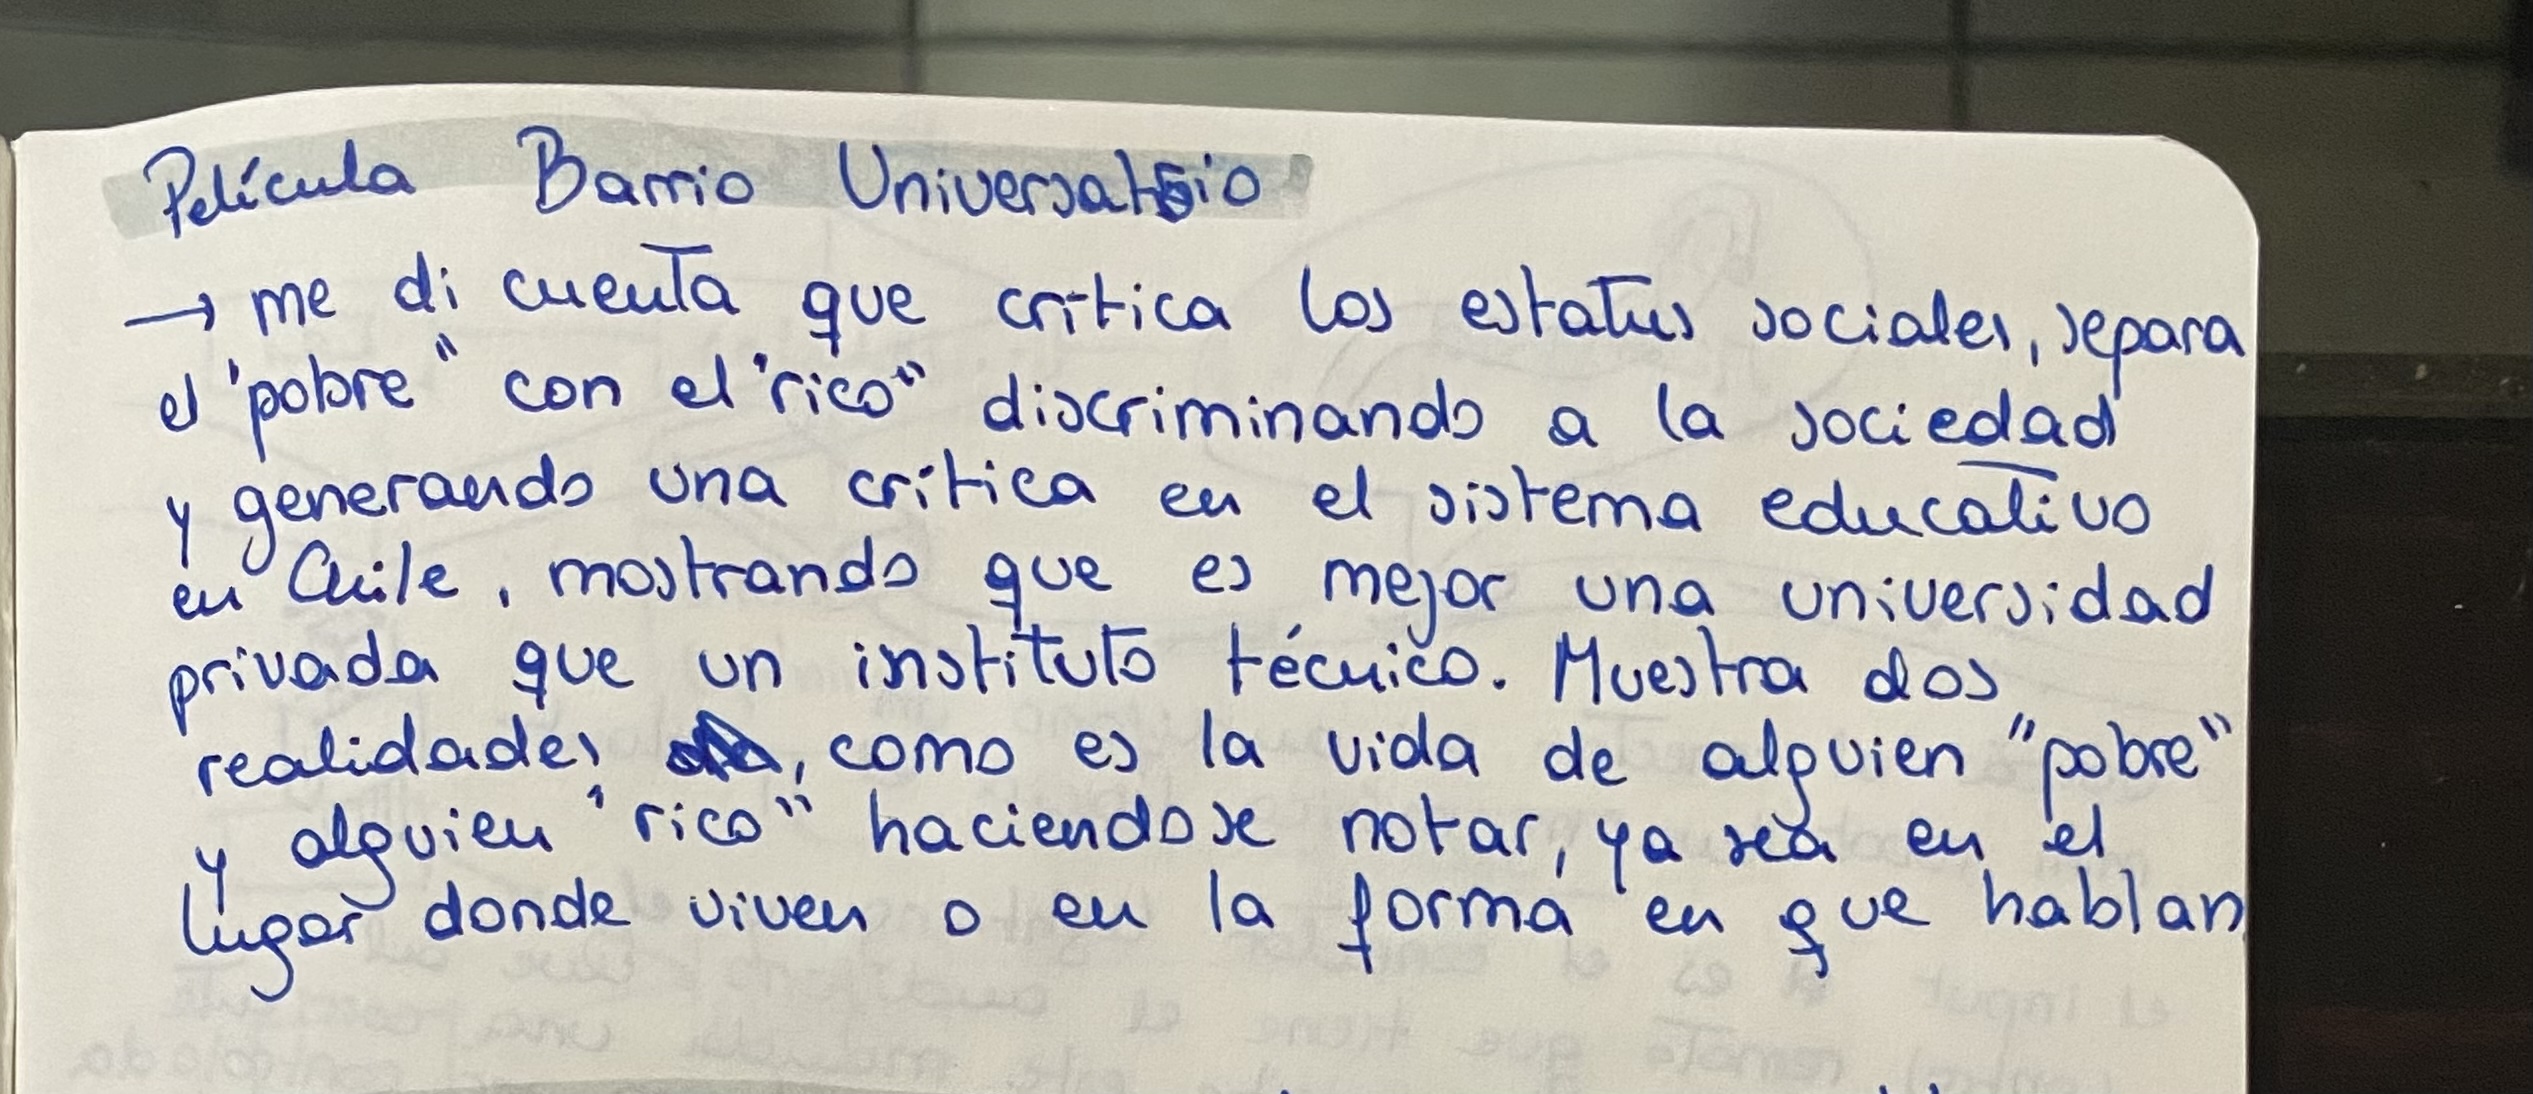 Película Barrio Universatsio
→ me di cuenta que crítica los estatus sociales, separa
el "pobre" con el "rico" discriminando a la sociedad
y generando una crítica en el sistema educativo
en Chile, mostrando que es mejor una universidad
privada que un instituto técnico. Muestra dos
realidades , como es la vida de alguien "pobre"
y alguien "rico" haciendose notar, ya sea en el
lugar donde viven o en la forma en que hablan